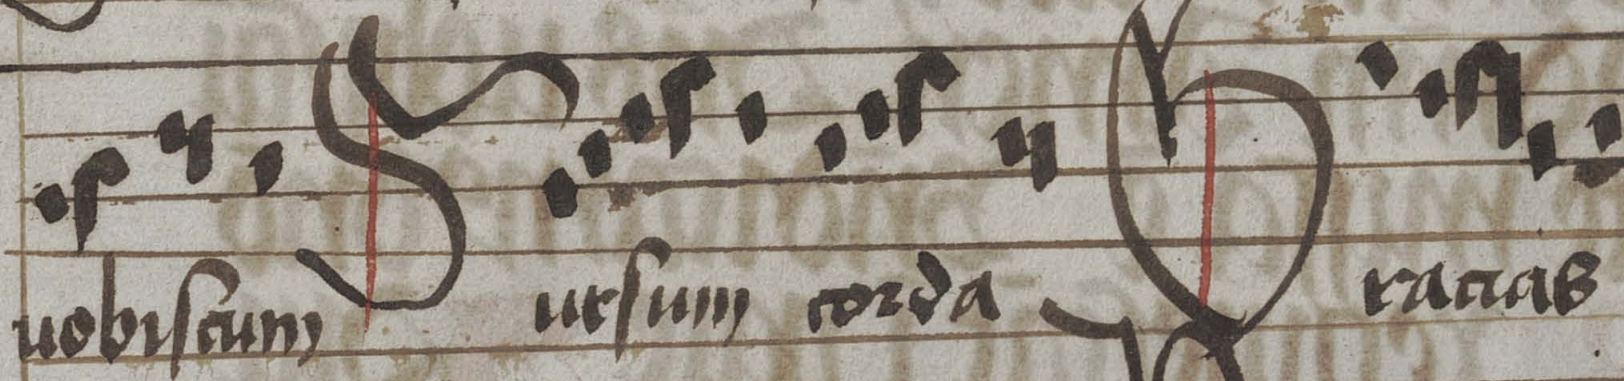 uobiscum Sursum corda Gracias